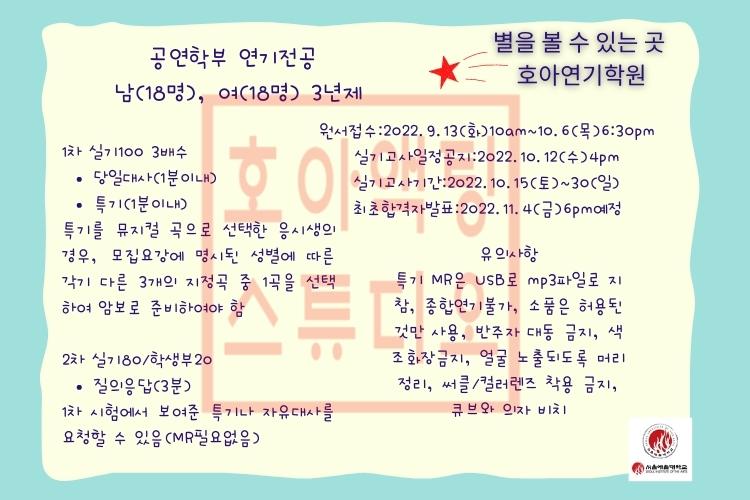 공연학부 연기전공
남(18명), 여(18명) 3년제
별을 볼 수 있는 곳
호아연기학원
1차 실기100 3배수
• 당일대사(1분이내)
• 특기(1분이내)
특기를 뮤지컬 곡으로 선택한 응시생의
경우, 모집요강에 명시된 성별에 따른
각기 다른 3개의 지정곡 중 1곡을 선택
하여 암보로 준비하여야 함
2차 실기80/학생부20
• 질의응답(3분)
1차 시험에서 보여준 특기나 자유대사를
요청할 수 있음(MR필요없음)
원서접수:2022.9.13(화)10am~10.6(목)6:30pm
실기고사일정공지:2022.10.12(수)4pm
실기고사기간:2022.10.15(토)~30(일)
최초합격자발표:2022.11.4(금)6pm예정
유의사항
특기 MR은 USB로 mp3파일로 지
참, 종합연기불가, 소품은 허용된
것만 사용, 반주자 대동 금지, 색
조화장금지, 얼굴 노출되도록 머리
정리, 써클/컬러렌즈 착용 금지,
큐브와 의자 비치
호아액팅
스튜디오
서울예술대학교
SEOUL INSTITUTE OF THE ARTS